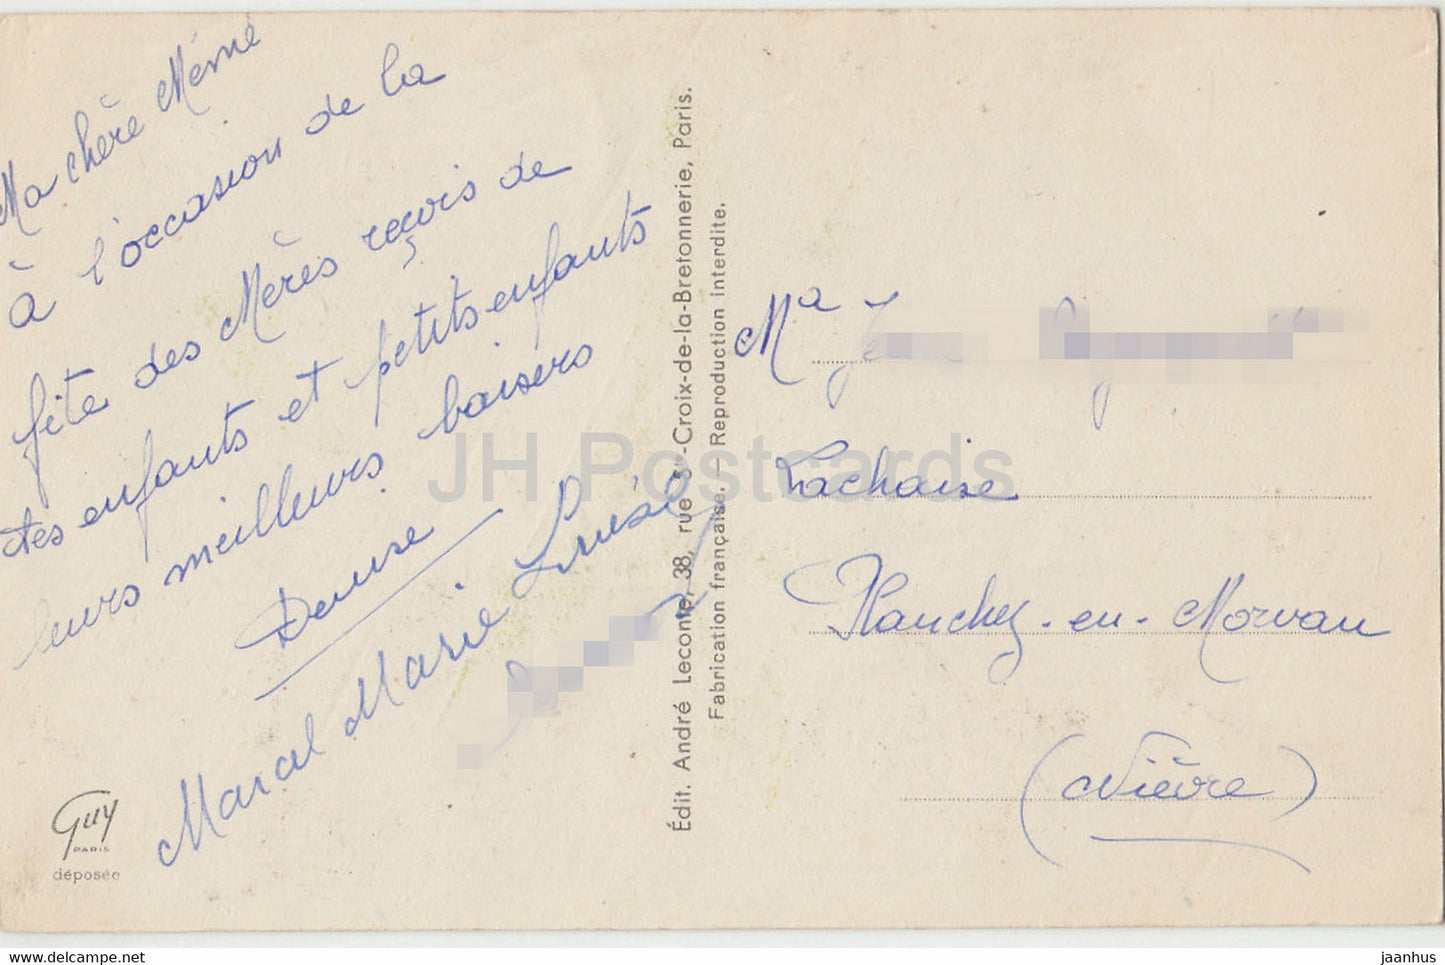 Ma chère Mémé
à l'occasion de la
fête des Mères reçois de
tes enfants et petits enfants
leurs meilleurs baisers
Denise
Marcel Marie Louise
Guy
PARIS
déposée
Édit. André Leconte, 38, rue Ste-Croix-de-la-Bretonnerie, Paris.
Fabrication française. — Reproduction interdite.
Ma
Lachaise
Planchez-en-Morvan
(Nièvre)
JH Postcards
www.delcampe.net
jaanhus